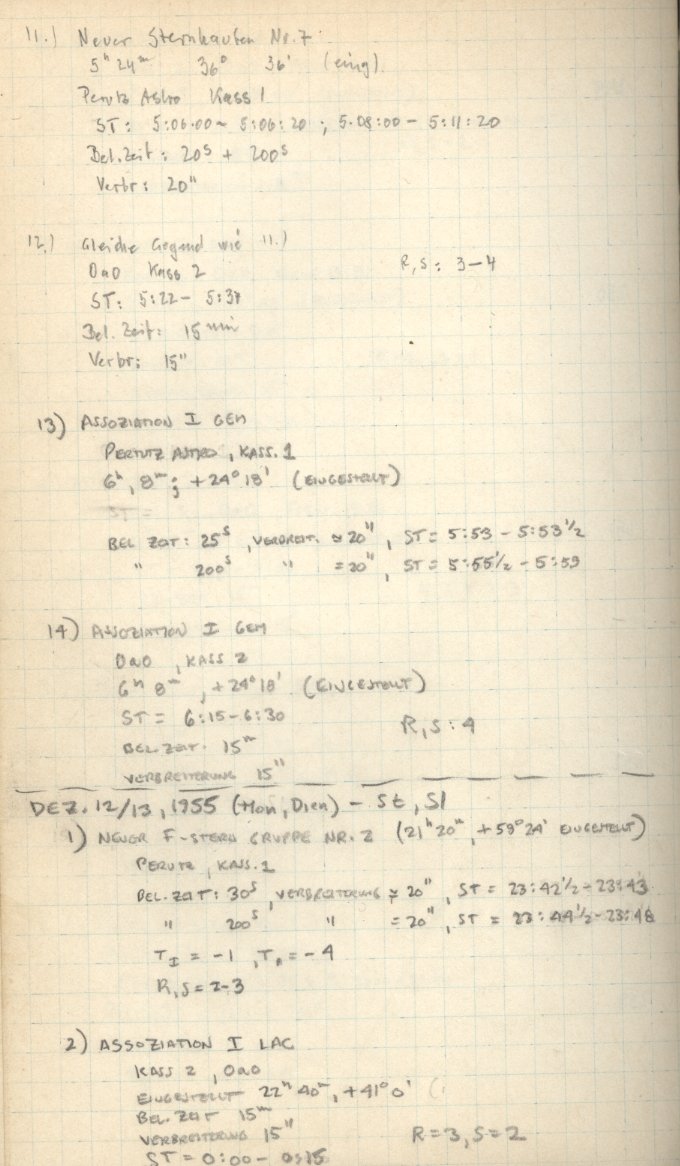 11.) Neuer Sternhaufen Nr. 7
5ʰ 24ᵐ 36° 36' (eing).
Perutz Astro Kass 1
ST: 5:06:00 – 5:06:20 ; 5:08:00 – 5:11:20
Bel. Zeit: 20ˢ + 200ˢ
Verbr: 20"
12.) Gleiche Gegend wie 11.)
OaO Kass 2 R,S: 3–4
ST: 5:22 – 5:37
Bel. Zeit: 15 min
Verbr: 15"
13) ASSOZIATION I GEM
PERUTZ ASTRO, KASS. 1
6ʰ, 8ᵐ; +24° 18' (EINGESTELLT)
ST =
BEL ZEIT: 25ˢ, VERBREIT. ≈ 20", ST = 5:53 – 5:53½
" 200ˢ " = 20", ST = 5:55½ – 5:59
14) ASSOZIATION I GEM
OaO, KASS 2
6ʰ 8ᵐ, +24° 18' (EINGESTELLT)
ST = 6:15 – 6:30
R,S: 4
BEL. ZEIT. 15ᵐ
VERBREITERUNG 15"
DEZ. 12/13, 1955 (Mon, Dien) – St, Sl
1) NEUER F-STERN GRUPPE NR. 2 (21ʰ 20ᵐ, +59° 24' EINGESTELLT)
PERUTZ, KASS. 1
BEL. ZEIT: 30ˢ, VERBREITERUNG ≈ 20", ST = 23:42½ – 23:43
" 200ˢ " = 20", ST = 23:44½ – 23:48
T_I = -1, T_A = -4
R,S = 2-3
2) ASSOZIATION I LAC
KASS 2, OaO
EINGESTELLT 22ʰ 40ᵐ, +41° 0' (
BEL. ZEIT 15ᵐ
VERBREITERUNG 15" R=3, S=2
ST = 0:00 – 0:15